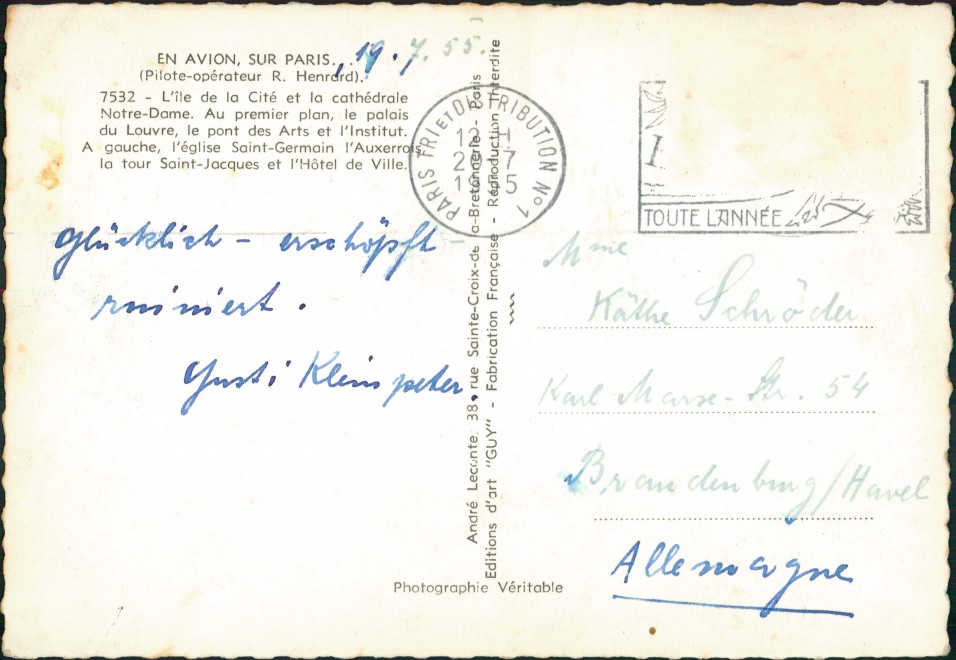 EN AVION, SUR PARIS... 19.7.55.
(Pilote-opérateur R. Henrard).
7532 - L'île de la Cité et la cathédrale
Notre-Dame. Au premier plan, le palais
du Louvre, le pont des Arts et l'Institut.
A gauche, l'église Saint-Germain l'Auxerrois,
la tour Saint-Jacques et l'Hôtel de Ville.
glücklich - erschöpft -
ruiniert.
Gusti Kleinpeter.
André Leconte, 38, rue Sainte-Croix-de-la-Bretonnerie - Paris
Editions d'art "GUY" - Fabrication Française - Reproduction Interdite
Photographie Véritable
PARIS TRI ET DISTRIBUTION N°1
12 H
7
TOUTE L'ANNÉE
Mme
Käthe Schröder
Karl Marx-Str. 54
Brandenburg/Havel
Allemagne